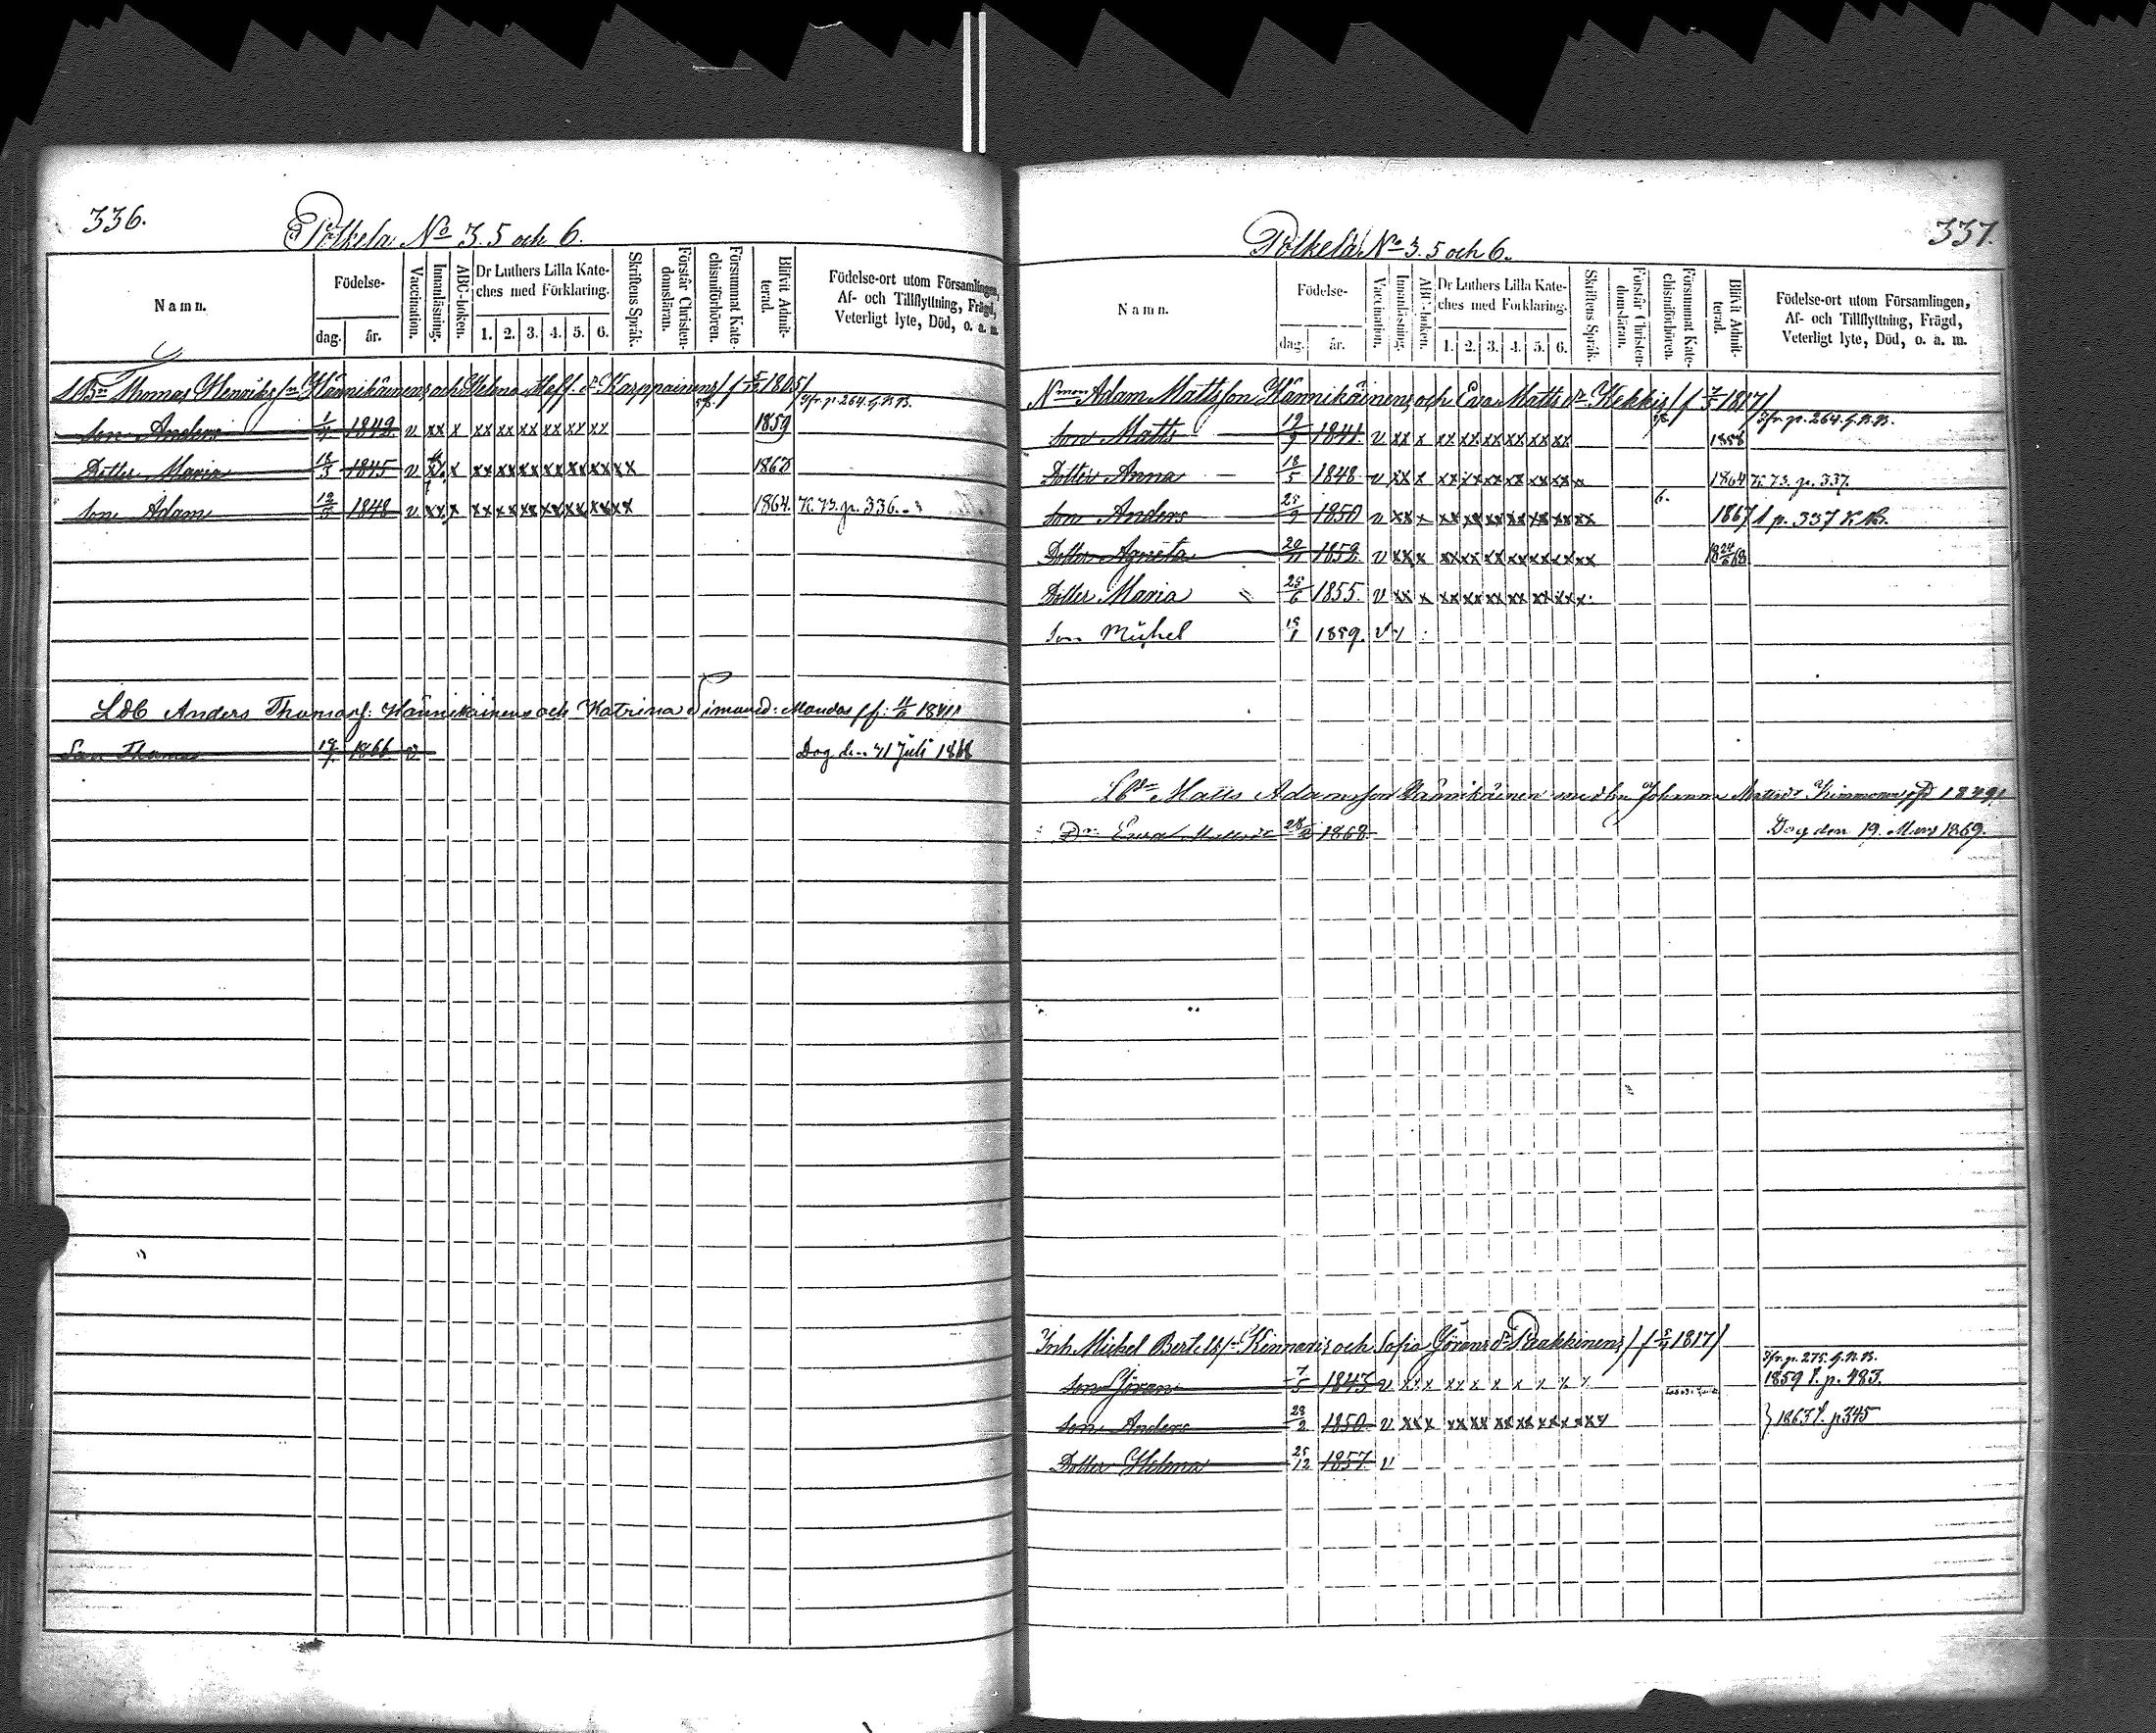 336.
Pölkelä No 3. 5 och 6.
Namn.
Födelse-
dag. år.
Vaccination.
Innanläsning.
ABC-boken.
Dr Luthers Lilla Kate-
ches med Förklaring.
1. 2. 3. 4. 5. 6.
Skriftens Språk.
Förstår Christen-
domsläran.
Försummat Kate-
chismiförhören.
Blifvit Admit-
terad.
Födelse-ort utom Församlingen,
Af- och Tillflyttning, Frägd,
Veterligt lyte, Död, o. a. m.
Thomas Henriks Hännikäinens och Helena Karppainens 1805
fr. p. 264. G. K. B.
Son Anders 1842 v xx x xx xx xx xx xx xx 1859
Dotter Maria 18/3 1845 v x xx xx xx xx xx xx xx
Son Adam 1848 v xx x xx xx xx xx xx xx xx 1864. K. 73. p. 336.
Anders Thomasf: Hännikäinens och Katrina Simonsd: 1841
Son Thomas 1866 v Dog den 31 Juli 1868
337.
Pölkelä No 3. 5 och 6.
Namn.
Födelse-
dag. år.
Vaccination.
Innanläsning.
ABC-boken.
Dr Luthers Lilla Kate-
ches med Förklaring.
1. 2. 3. 4. 5. 6.
Skriftens Språk.
Förstår Christen-
domsläran.
Försummat Kate-
chismiförhören.
Blifvit Admit-
terad.
Födelse-ort utom Församlingen,
Af- och Tillflyttning, Frägd,
Veterligt lyte, Död, o. a. m.
Adam Mattsson Hännikäinens och Eva Matts dr Hekkis 1817
fr. p. 264. G. K. B.
Son Matts 1841 v xx x xx xx xx xx xx xx 1858
Dotter Anna 18/5 1848 v xx x xx xx xx xx xx xx x 1864 K. 73. p. 337.
Son Anders 1850 v xx x xx xx xx xx xx xx xx 6. 1867 p. 337 K B.
Dotter Agneta 1852 v xx x xx xx xx xx xx xx xx
Dotter Maria 25/6 1855. v xx x xx xx xx xx xx xx x
Son Michel 1859. v
Matts Adamsson Hännikäinen Johanna 1849
Dr Eva 28/2 1868 Dog den 19. Mars 1869.
Inh. Michel Bertels Kinnaris och Sofia Görans dr Paakkinens 1817
fr. p. 275. G. K. B.
Son Göran 7/5 1843 v xx x xx x x x x x 1859 p. 483.
Son Anders 28/2 1850 v xx x xx xx xx xx xx xx xx 1863 p. 345
Dotter Helena 25/12 1857 v